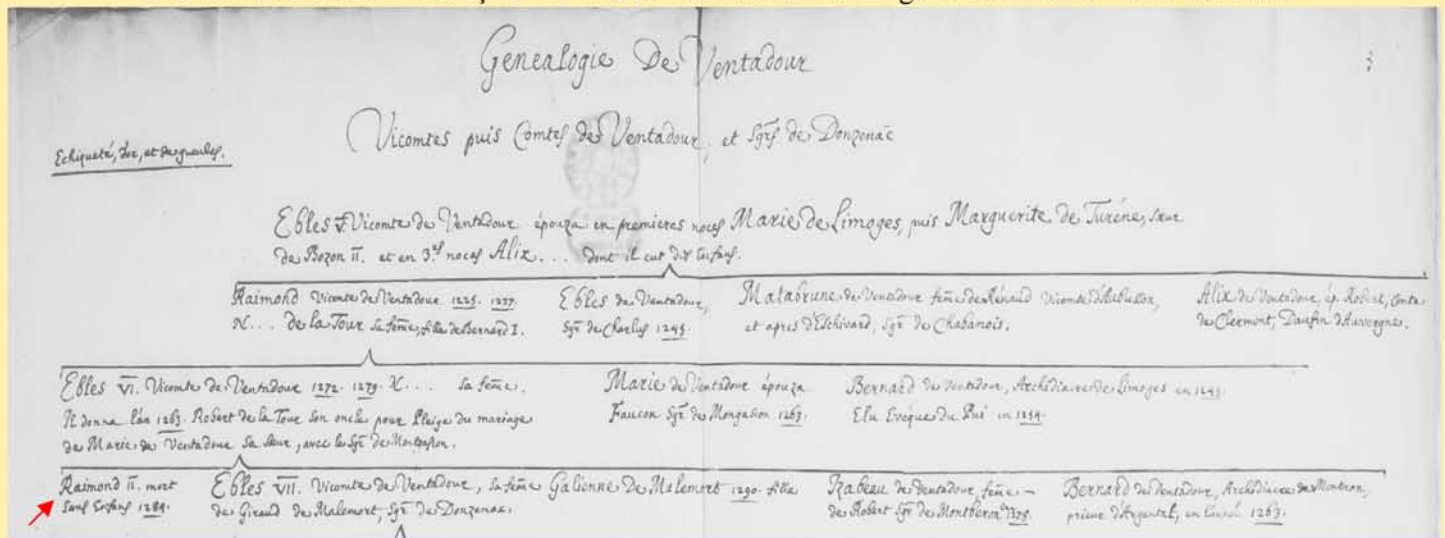 Genealogie De Ventadour
3
Vicomtes puis Comtes de Ventadour, et Sgrs de Donzenac
Echiqueté, d'or, et de gueules.
Ebles V. Vicomte de Ventadour épouza en premieres noces Marie de Limoges, puis Marguerite de Turéne, sœur
de Bozon II. et en 3.es noces Alix . . . dont il eut
Raimond Vicomte de Ventadour 1225. 1237.
N. . . De la Tour sa feme, fille de Bernard I.
Ebles de Ventadour,
Sgr de Charlus 1245
Matabrune de Ventadour feme de Rénaud Vicomte d'Aubusson,
et apres d'Eschivard, Sgr de Chabanois.
Alix de Ventadour, ép. Robert, Comte
de Clermont, Daufin d'Auvergne.
Ebles VI. Vicomte de Ventadour 1272. 1279. N. . . sa feme.
Il donna l'an 1263. Robert de la Tour son oncle pour Pleige du mariage
de Marie de Ventadour sa sœur, avec le Sgr de
Marie de Ventadour épouza
Faucon Sgr de Mongascon 1263.
Bernard de Ventadour, Archidiacre de Limoges en
Elu Evêque du Pui en 1254.
Raimond II. mort
sans enfans 1284.
Ebles VII. Vicomte de Ventadour, sa feme Galienne De Malemort 1290. fille
de Giraud de Malemort, Sgr de Donzenac.
Izabeau de Ventadour, feme
de Robert Sgr de Montberon
Bernard de Ventadour, Archidiacre de
prieur d'Argental, en 1263.